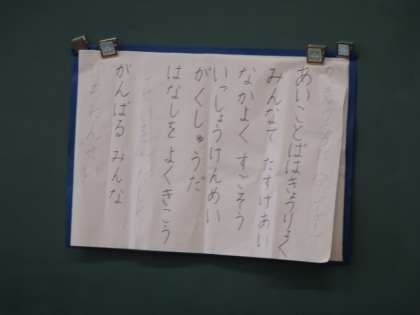 あいことばはきょうりょく
みんなで たすけあい
なかよく すごそう
いっしょうけんめい
がくしゅうだ
はなしをよくきこう
がんばる みんな